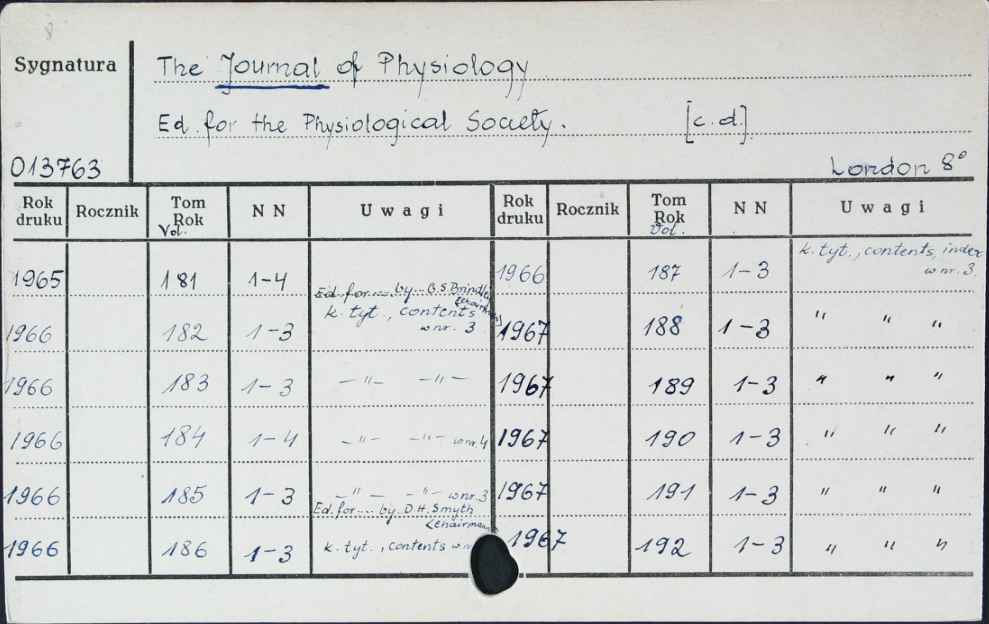 8
Sygnatura The Journal of Physiology
Ed. for the Physiological Society. [c.d.]
013763 London 8°
Rok druku Rocznik Tom Rok Vol. N N Uwagi Rok druku Rocznik Tom Rok Vol. N N Uwagi
1965 181 1-4 1966 187 1-3 k. tyt., contents, index w nr. 3.
Ed. for .... by .. G.S. Brindley
1966 182 1-3 k. tyt., contents w nr. 3 1967 188 1-3 " " "
1966 183 1-3 -"- -"- 1967 189 1-3 " " "
1966 184 1-4 -"- -"- w nr. 4 1967 190 1-3 " " "
1966 185 1-3 -"- -"- w nr. 3 1967 191 1-3 " " "
Ed. for .... by. D.H. Smyth
1966 186 1-3 k. tyt., contents w 1967 192 1-3 " " "